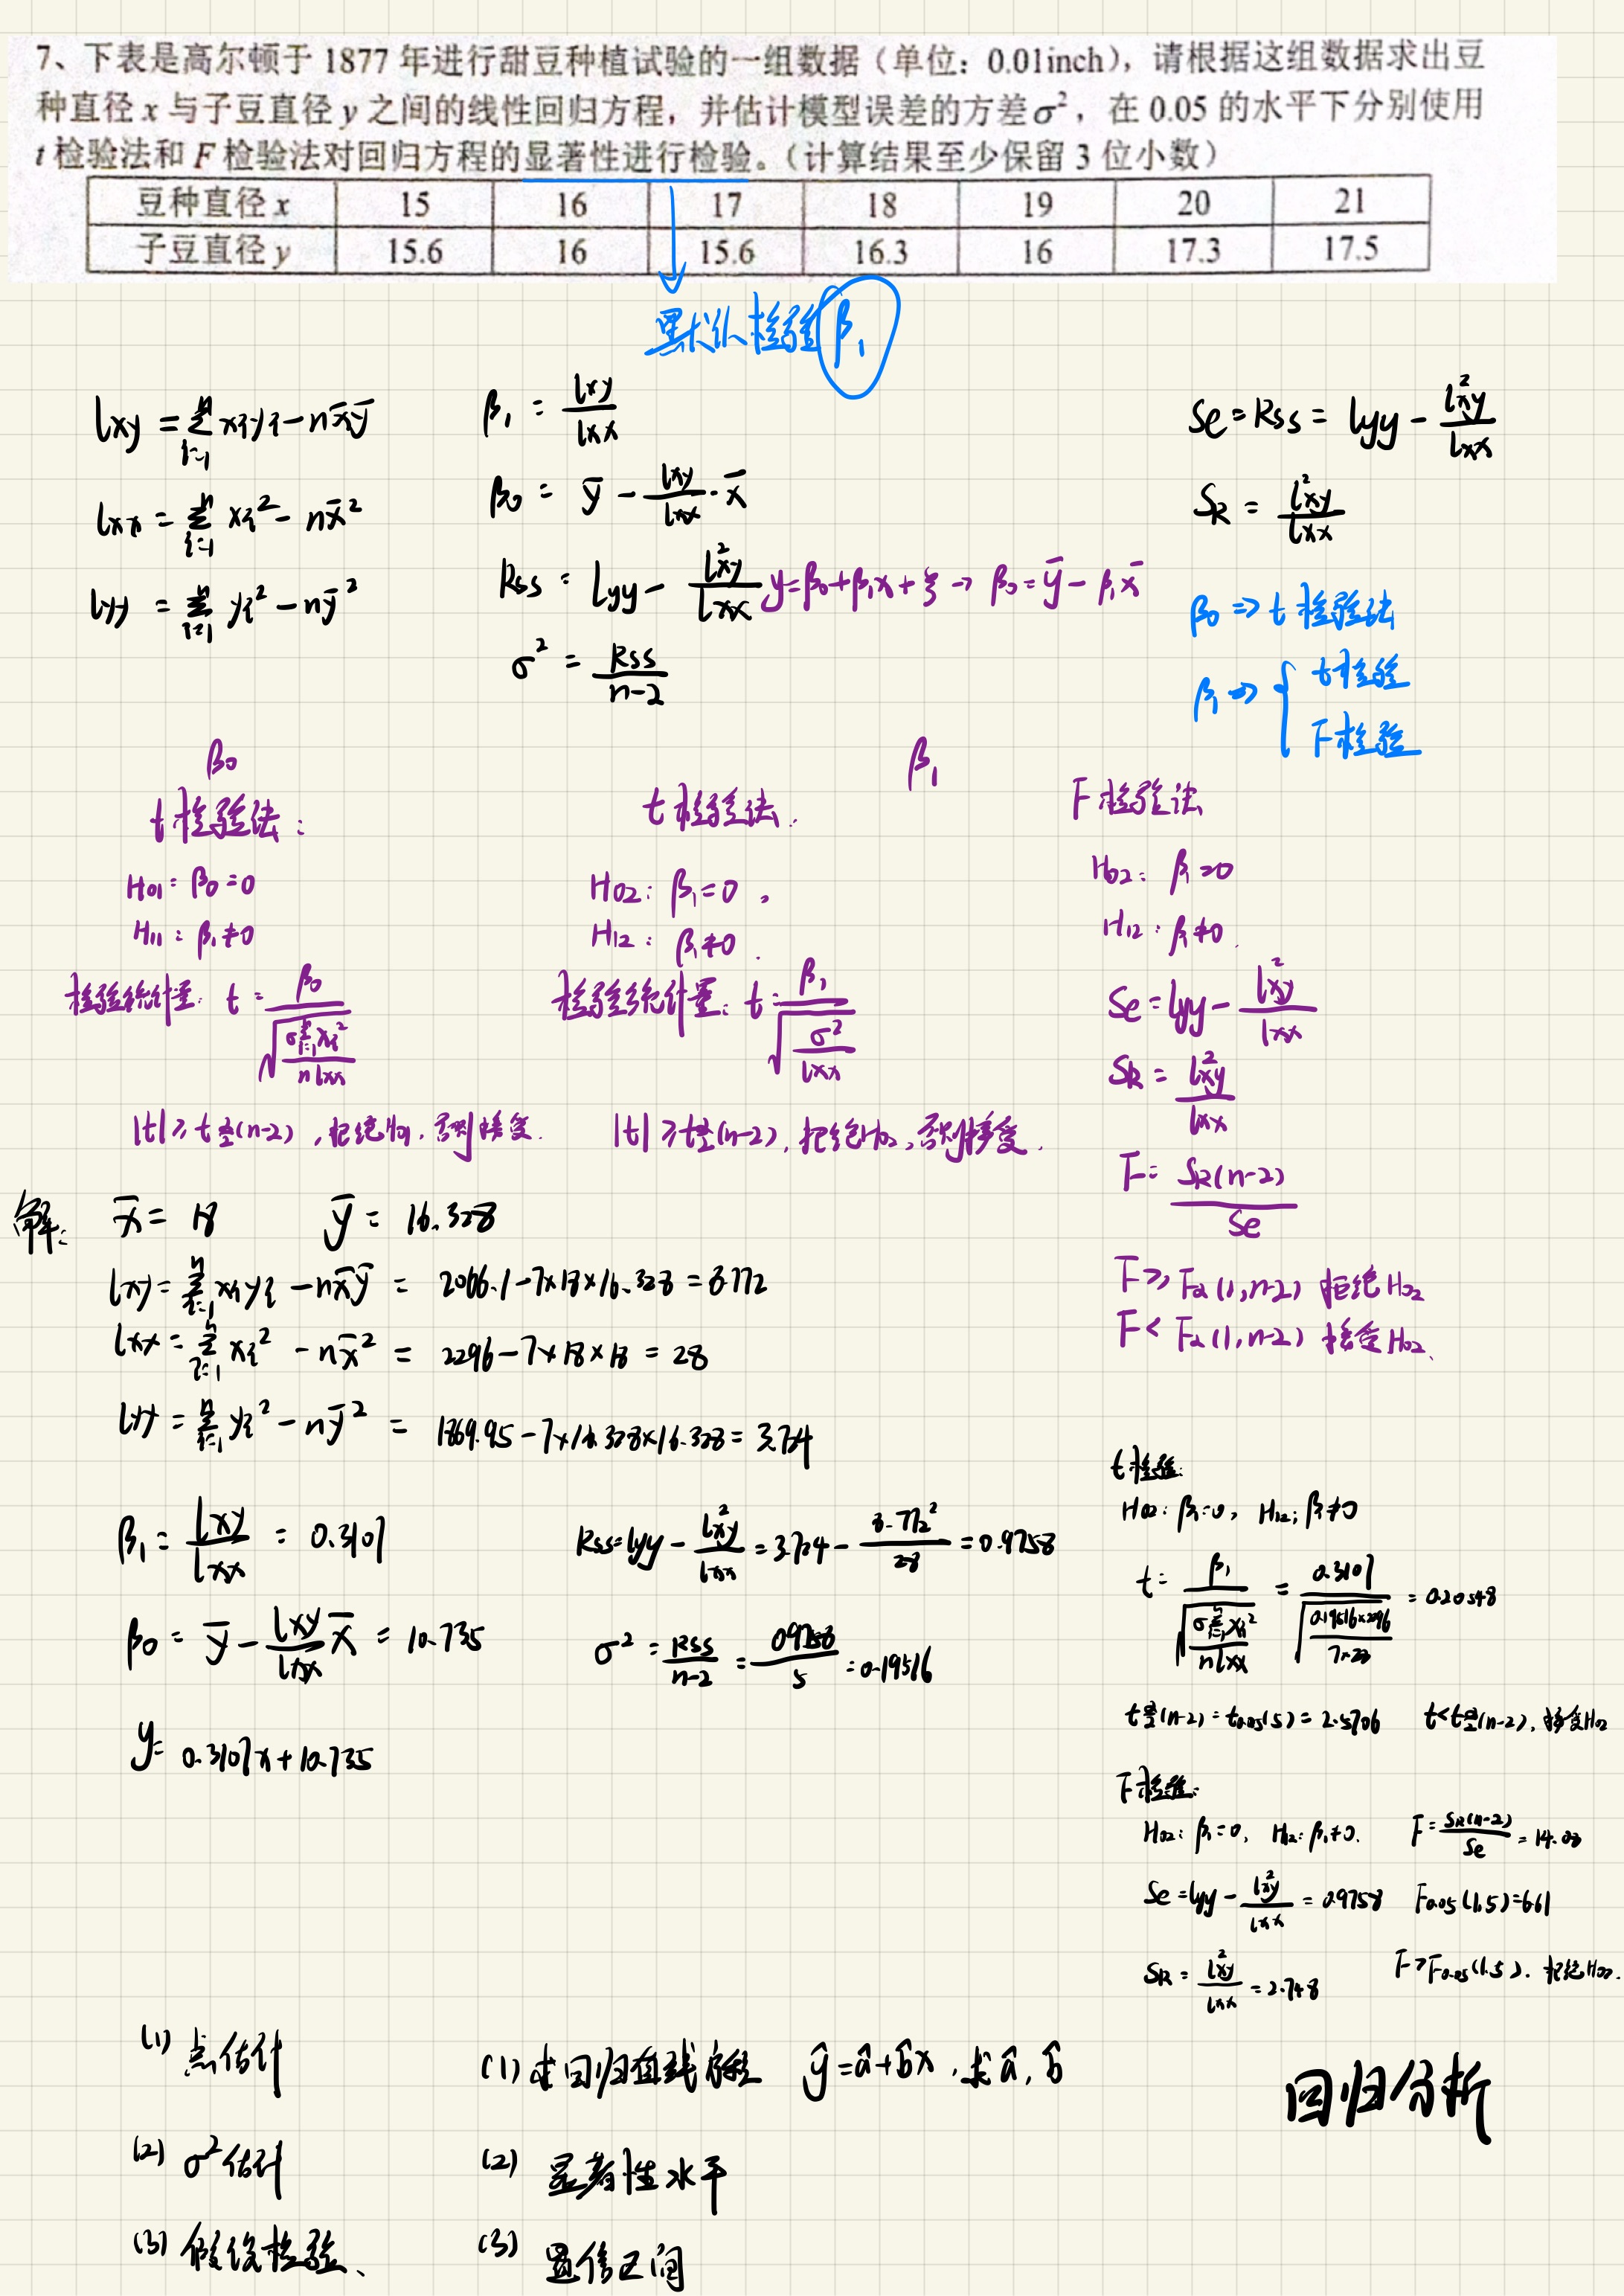 7、下表是高尔顿于 1877 年进行甜豆种植试验的一组数据（单位：0.01inch），请根据这组数据求出豆
种直径 x 与子豆直径 y 之间的线性回归方程，并估计模型误差的方差 σ²，在 0.05 的水平下分别使用
t 检验法和 F 检验法对回归方程的显著性进行检验。（计算结果至少保留 3 位小数）
豆种直径 x 15 16 17 18 19 20 21
子豆直径 y 15.6 16 15.6 16.3 16 17.3 17.5
默认检验 β₁
lxy = Σⁿᵢ₌₁ xᵢyᵢ - n x̄ ȳ
lxx = Σⁿᵢ₌₁ xᵢ² - n x̄²
lyy = Σⁿᵢ₌₁ yᵢ² - n ȳ²
β₁ = lxy / lxx
β₀ = ȳ - lxy/lxx · x̄
Rss = lyy - l²xy/lxx
y = β₀ + β₁x + ξ → β₀ = ȳ - β₁x̄
σ² = Rss/(n-2)
Se = Rss = lyy - l²xy/lxx
SR = l²xy/lxx
β₀ ⇒ t 检验法
β₁ ⇒ { t检验
F检验
β₀
t 检验法：
H₀₁: β₀ = 0
H₁₁: β₁ ≠ 0
检验统计量: t = β₀ / √(σΣⁿᵢ₌₁xᵢ² / n lxx)
|t| ≥ t α/2 (n-2)，拒绝H₀₁，否则接受.
β₁
t 检验法.
H₀₂: β₁ = 0，
H₁₂: β₁ ≠ 0.
检验统计量: t = β₁ / √(σ²/lxx)
|t| ≥ t α/2 (n-2)，拒绝H₀₂，否则接受.
F 检验法
H₀₂: β₁ = 0
H₁₂: β₁ ≠ 0.
Se = lyy - l²xy/lxx
SR = l²xy/lxx
F = SR(n-2)/Se
F ≥ Fα(1,n-2) 拒绝H₀₂
F < Fα(1,n-2) 接受H₀₂.
解: x̄ = 18 ȳ = 16.328
lxy = Σⁿᵢ₌₁ xᵢyᵢ - n x̄ ȳ = 2066.1 - 7×18×16.328 = 8.772
lxx = Σⁿᵢ₌₁ xᵢ² - n x̄² = 2296 - 7×18×18 = 28
lyy = Σⁿᵢ₌₁ yᵢ² - n ȳ² = 1869.95 - 7×16.328×16.328 = 3.724
β₁ = lxy/lxx = 0.3107
β₀ = ȳ - lxy/lxx x̄ = 10.735
y = 0.3107x + 10.735
Rss = lyy - l²xy/lxx = 3.724 - 8.772²/28 = 0.9758
σ² = Rss/(n-2) = 0.9758/5 = 0.19516
t检验:
H₀₂: β₁ = 0, H₁₂: β₁ ≠ 0
t = β₁ / √(σΣⁿᵢ₌₁xᵢ² / n lxx) = 0.3107 / √(0.19516×2296 / 7×28) = 0.20548
t α/2 (n-2) = t₀.₀₅(5) = 2.5706 t < t α/2 (n-2)，接受H₀₂
F检验:
H₀₂: β₁ = 0, H₁₂: β₁ ≠ 0. F = SR(n-2)/Se = 14.08
Se = lyy - l²xy/lxx = 0.9758 F₀.₀₅(1,5) = 6.61
SR = l²xy/lxx = 2.748 F > F₀.₀₅(1.5). 拒绝H₀₂.
(1) 点估计
(2) σ² 估计
(3) 假设检验、
(1) 求回归直线方程 ŷ = â + b̂x，求 â, b̂
(2) 显著性水平
(3) 置信区间
回归分析